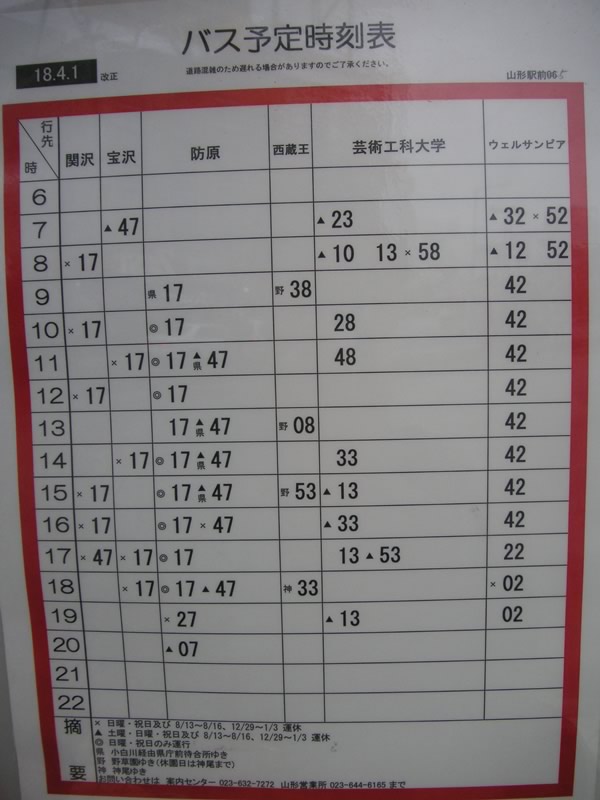 バス予定時刻表
18.4.1 改正
道路混雑のため遅れる場合がありますのでご了承ください。
山形駅前06
行先 時 関沢 宝沢 防原 西蔵王 芸術工科大学 ウェルサンピア
6
7 ▲47 ▲23 ▲32 ×52
8 ×17 ▲10 13 ×58 ▲12 52
9 県17 野38 42
10 ×17 ◎17 28 42
11 ×17 ◎17 ▲県47 48 42
12 ×17 ◎17 42
13 17 ▲県47 野08 42
14 ×17 ◎17 ▲県47 33 42
15 ×17 ◎17 ▲県47 野53 ▲13 42
16 ×17 ◎17 ×47 ▲33 42
17 ×47 ×17 ◎17 13 ▲53 22
18 ×17 ◎17 ▲47 神33 ×02
19 ×27 ▲13 02
20 ▲07
21
22
摘要
× 日曜・祝日及び 8/13~8/16、12/29~1/3 運休
▲ 土曜・日曜・祝日及び 8/13~8/16、12/29~1/3 運休
◎ 日曜・祝日のみ運行
県 小白川経由県庁前待合所ゆき
野 野草園ゆき(休園日は神尾まで)
神 神尾ゆき
お問い合わせは 案内センター 023-632-7272 山形営業所 023-644-6165 まで